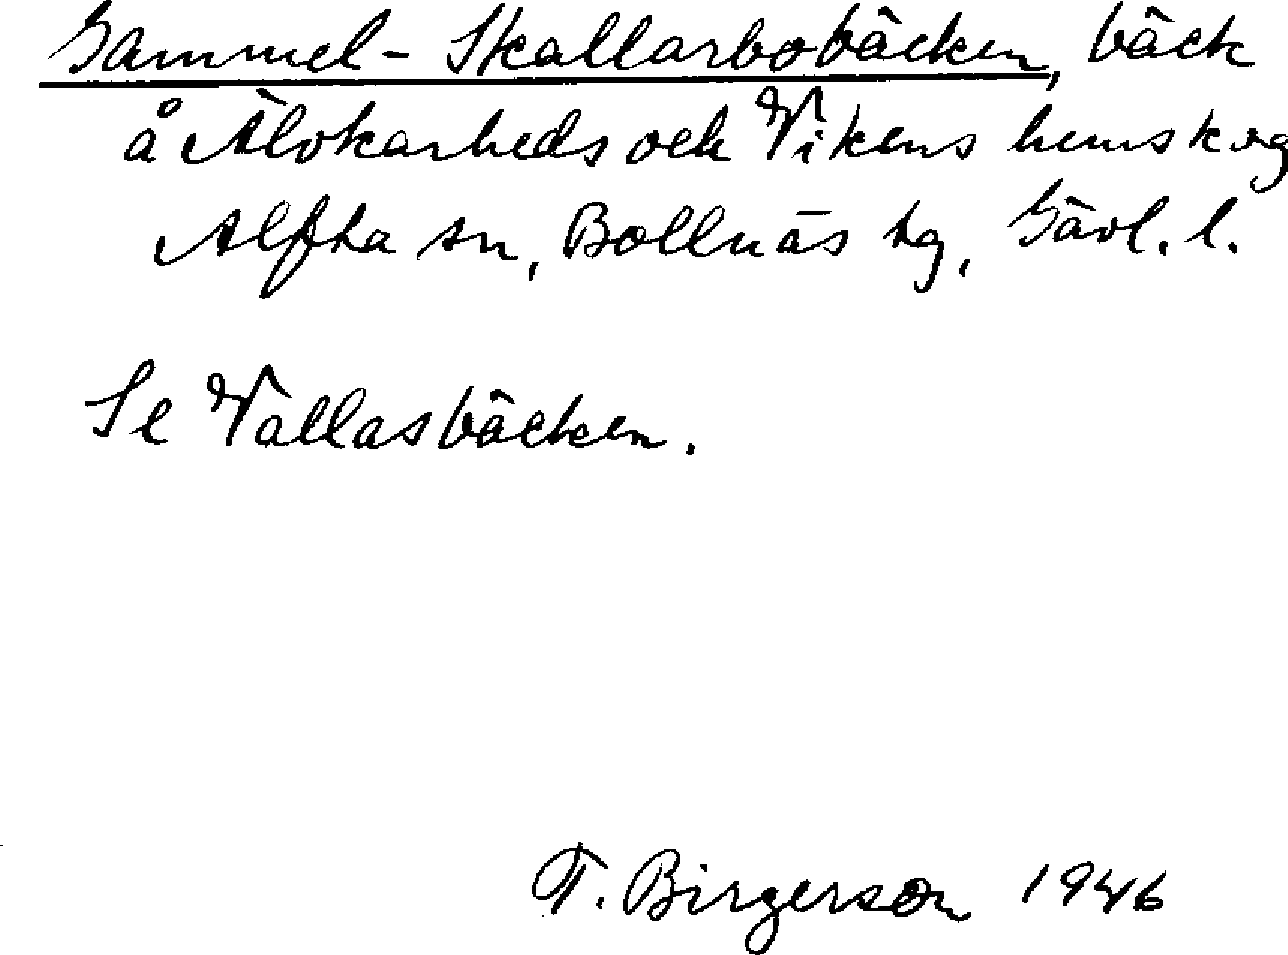 Gammel-Skallarbobäcken, bäck
å Älvkarheds och Vikens hemskog
Alfta sn, Bollnäs tg, Gävl. l.
Se Vallasbäcken.
T. Birgerson 1946